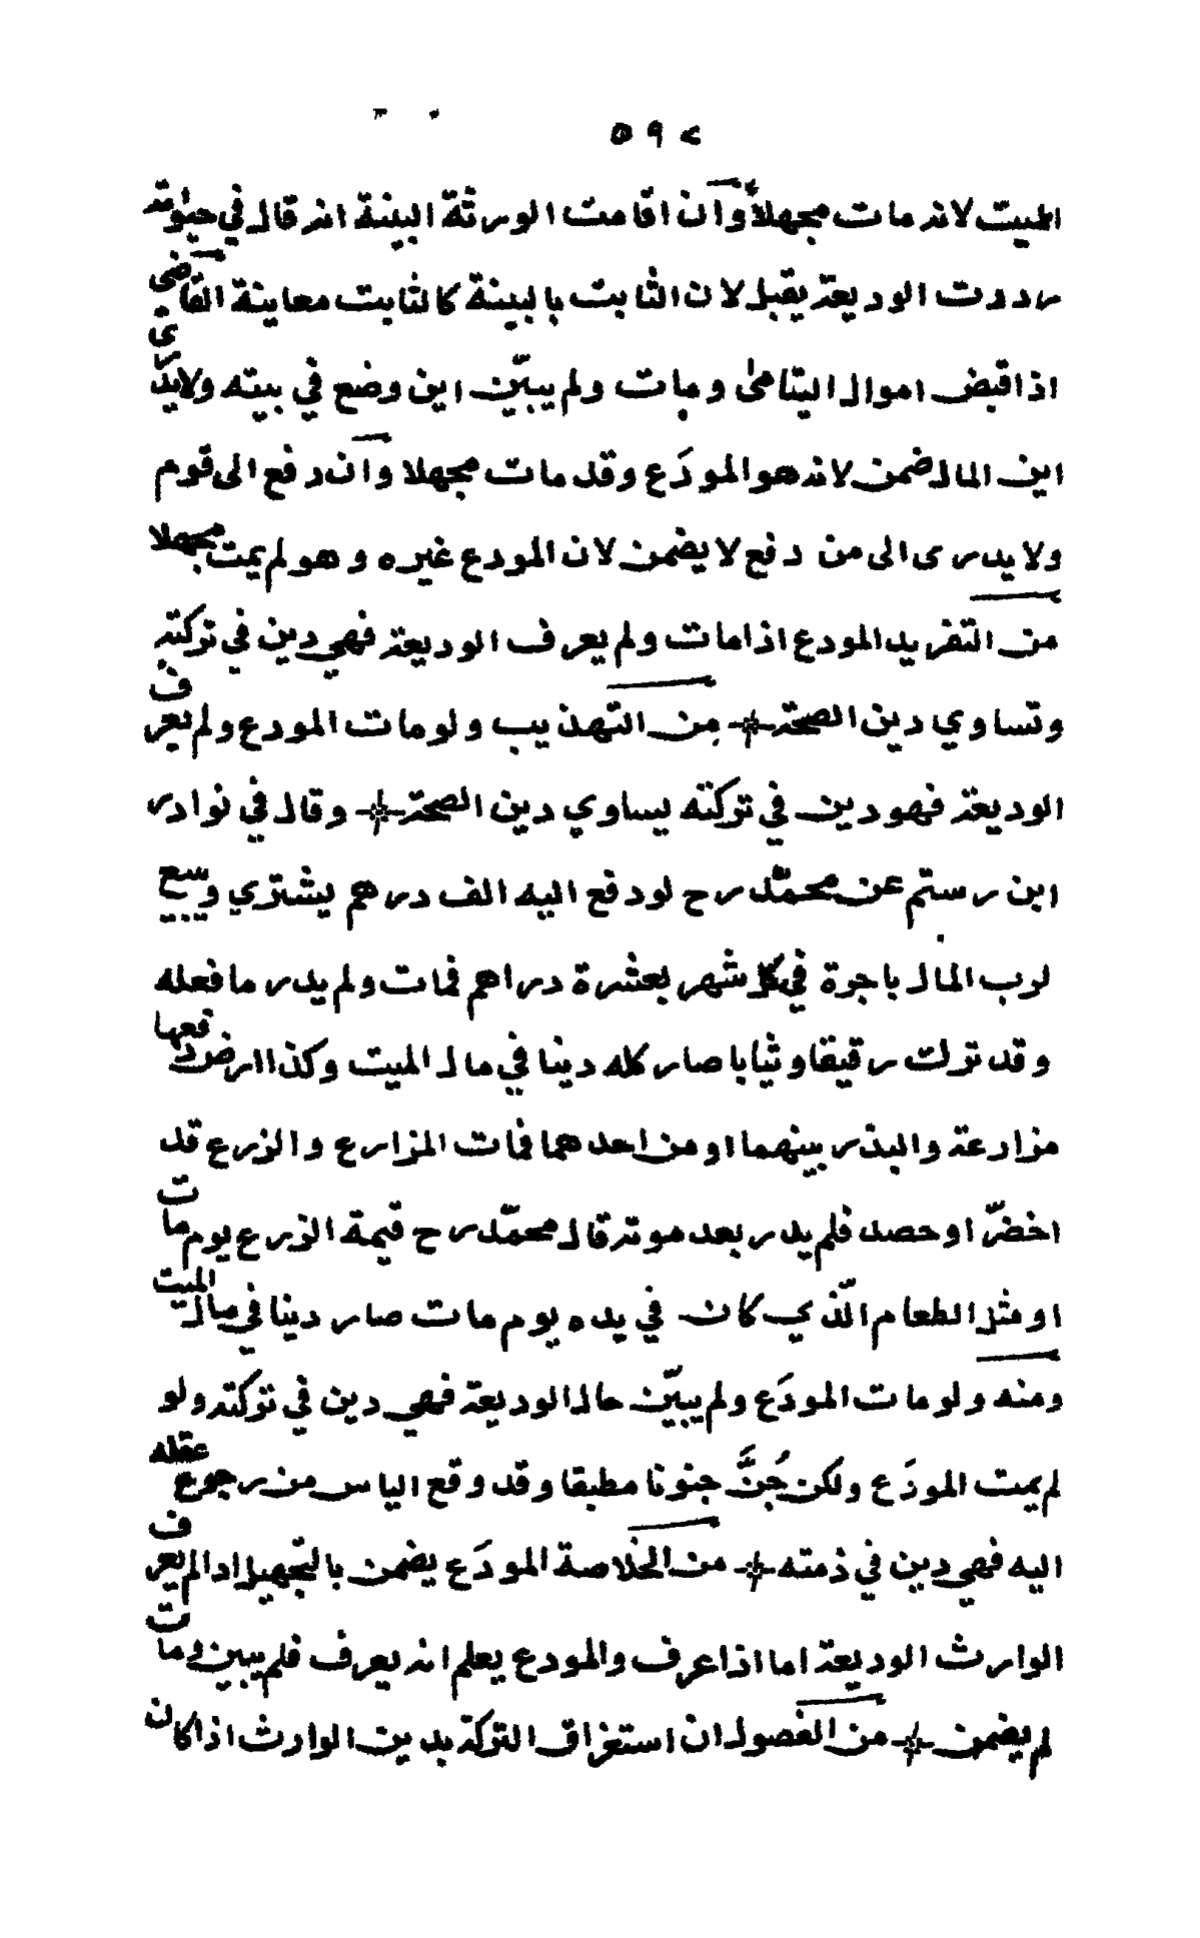 ٥٩٢
الميت لانه مات مجهلا وان اقامت الورثة البينة انه قال في حياته
رددت الوديعة يقبل لان الثابت بالبينة كالثابت معاينة القاضي
اذا قبض اموال اليتامى ومات ولم يبيّن اين وضع في بيته ولا يدرى
اين المال ضمن لانه هو المودَع وقد مات مجهلا وان دفع الى قوم
ولا يدرى الى من دفع لا يضمن لان المودع غيره وهو لم يمت مجهلا
من التفريد المودع اذا مات ولم يعرف الوديعة فهي دين في تركته
وتساوي دين الصحة من التهذيب ولو مات المودع ولم يعرف
الوديعة فهو دين في تركته يساوي دين الصحة وقال في نوادر
ابن رستم عن محمّد رح لو دفع اليه الف درهم يشتري ويبيع
لرب المال باجرة في كل شهر بعشرة دراهم فمات ولم يدر ما فعله
وقد ترك رقيقا وثيابا صار كله دينا في مال الميت وكذا ارض دفعها
مزارعة والبذر بينهما او من احدهما فمات المزارع والزرع قد
اخضرّ او حصد فلم يدر بعد موته قال محمّد رح قيمة الزرع يوم مات
او مثل الطعام الّذي كان في يده يوم مات صار دينا في مال الميت
ومنه ولو مات المودَع ولم يبيّن حال الوديعة فهي دين في تركته ولو
لم يمت المودَع ولكن جُنَّ جنونا مطبقا وقد وقع الياس من رجوع عقله
اليه فهي دين في ذمته من الخلاصة المودَع يضمن بالتّجهيل اذا لم يعرف
الوارث الوديعة اما اذا عرف والمودع يعلم انه يعرف فلم يبين ومات
لم يضمن من الفصول ان استغراق التركة بدين الوارث اذا كان